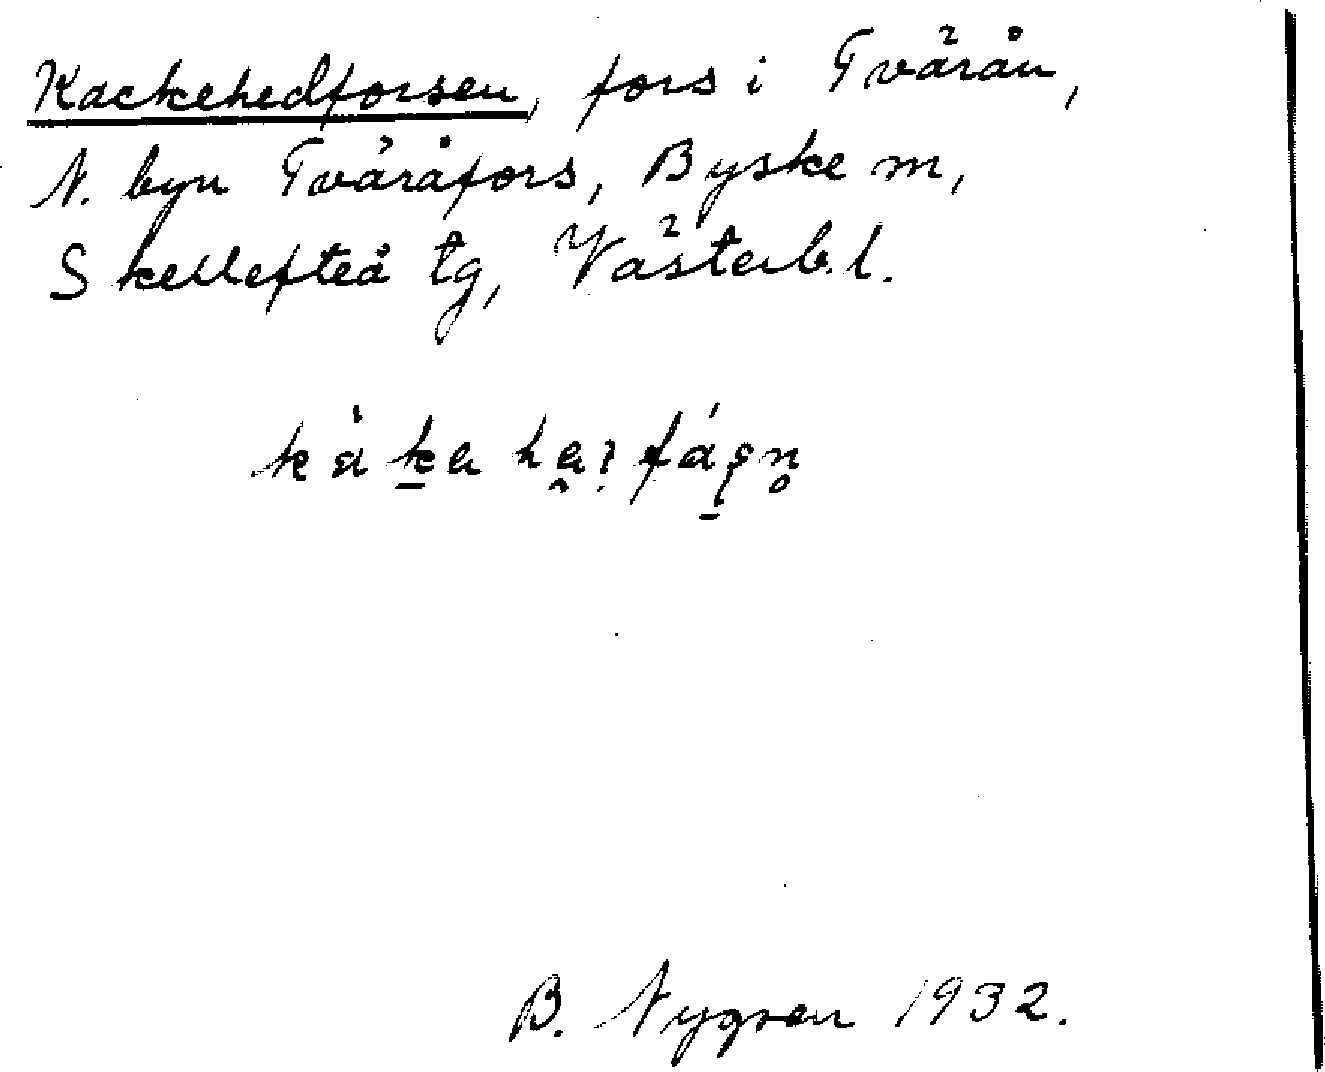 Kackehedforsen, fors i Tvärån,
N. byn Tväråfors, Byske sn,
Skellefteå tg, Västerb. l.
B. Nygren 1932.